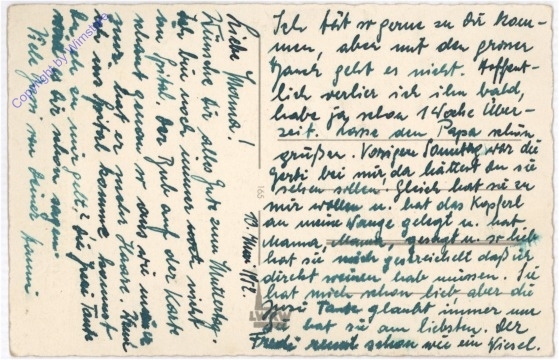 Liebe Mama!
Wünsche dir alles Gute zum Muttertag.
Ich bin noch immer noch nicht
im Spital. Der Bub auf der Karte
schaut genau so aus wie unser
nur hat er mehr Haare. Wenn
ich vom Spital komme kommst
doch zu mir gelt? die Frau Tante
wird es dir schon sagen
Viele Grüße von deiner
10. Mai 1942.
165
Ich tät so gerne zu dir kom-
men, aber mit den grossen
Bauch geht es nicht. Hoffent-
lich verlier ich ihn bald,
habe ja schon 1 Woche Über-
zeit. Lasse den Papa schön
grüßen. Vorigen Sonntag war die
Gerti bei mir, da hättest du sie
sehen sollen. Gleich hat sie zu
mir wollen u. hat das Kopferl
an meine Wange gelegt u. hat
Mamma, Mama gesagt u. so lieb
hat sie mich gestreichelt daß ich
direkt weinen hab müssen. Sie
hat mich schon lieb, aber die
Frau Tante glaubt immer nur
sie hat sie am liebsten. Der
Fredi rennt schon wie ein Wiesel.
Copyright by Wimstore